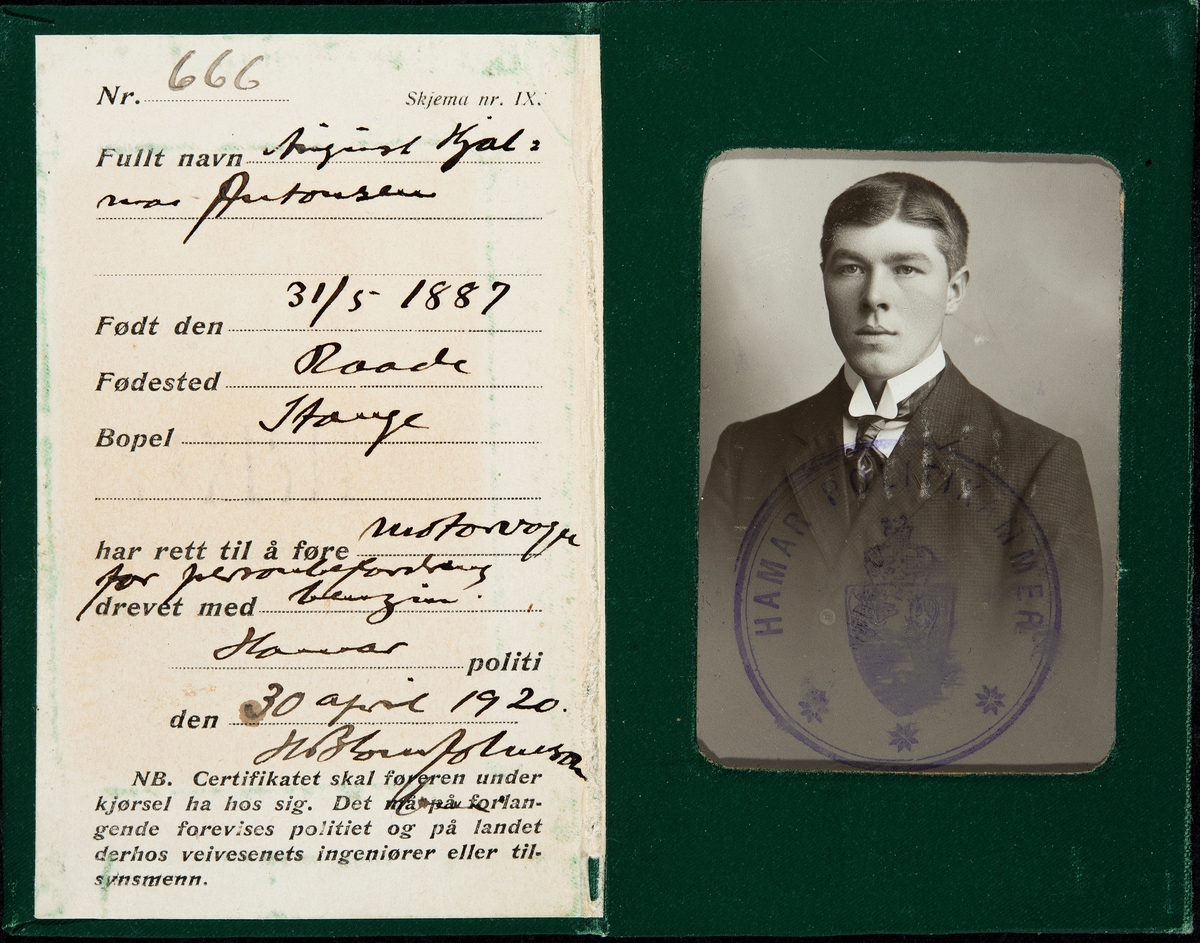 Nr. 666 Skjema nr. IX.
Fullt navn August Hjal=
mar Antonsen
Født den 31/5 1887
Fødested Raade
Bopel Stange
har rett til å føre motorvogn
for personbefordring
drevet med benzin.
Hamar politi
den 30 april 1920.
NB. Certifikatet skal føreren under
kjørsel ha hos sig. Det må på forlan-
gende forevises politiet og på landet
derhos veivesenets ingeniører eller til-
synsmenn.
HAMAR POLITIKAMMER